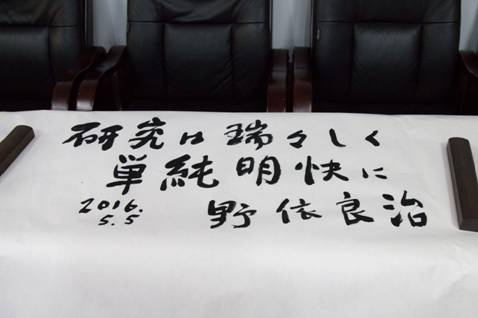 研究は瑞々しく
単純明快に
2016.
5.5
野依良治